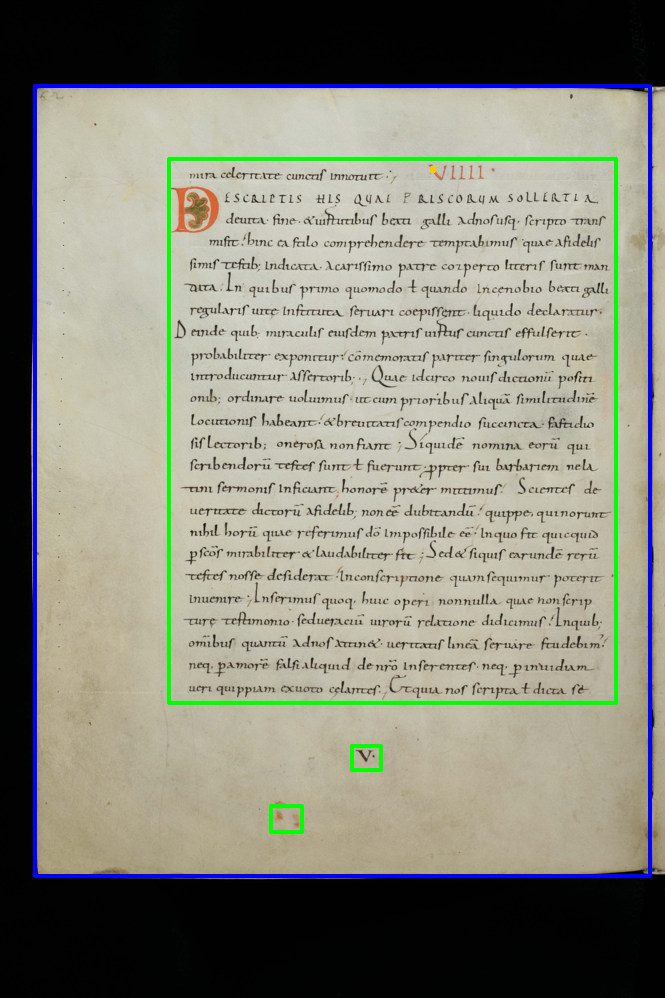 52
mira celeritate cuncti innotuit. VIIII.
DESCRIPTIS HIS QUAE PRISCORUM SOLLERTIA
de uita. fine. & uirtutibus beati galli ad nos usq; scripto trans
misit. hinc ea stilo comprehendere temptabimus quae a fidelis
simis testib; indicata. a carissimo patre cozperto literis sunt man
data. In quibus primo quomodo ł quando in cenobio beati galli
regularis uitę instituta seruari coepissent. liquido declaratur.
Deinde quib; miraculis eiusdem patris uirtus cunctis effulserit.
probabiliter exponitur. cōmemoratis pariter singulorum quae
introducuntur assertorib;. Quae idcirco nouis dictionū positi
onib; ordinare uoluimus. ut cum prioribus aliquā similitudinē
locutionis habeant. & breuitatis compendio succincta. fastidio
sis lectorib; onerosa non fiant; Siquidē nomina eorū qui
scribendorū testes sunt ł fuerunt. ꝓpter sui barbariem ne la
tini sermonis inficiant honorē pręter mittimus. Scientes de
ueritate dictorū a fidelib; non eē dubitandū. quippe qui norunt
nihil horū quae referimus dō impossibile eē. In quo fit quicquid
ꝑ scōs mirabiliter & laudabiliter fit; Sed & siquis earundē rerū
testes nosse desiderat. in conscriptione quam sequimur poterit
inuenire; Inserimus quoq. huic operi nonnulla quae non scrip
turę testimonio. sed ueraciū uirorū relatione didicimus. In quib;
omībus quantū ad nos attin&. ueritatis lineā seruare studebim'.
neq. ꝑ amorē falsi aliquid de nr̄o inserentes. neq. ꝑ inuidiam
ueri quippiam ex uoto cęlantes. Et quia nos scripta ł dicta se
V.